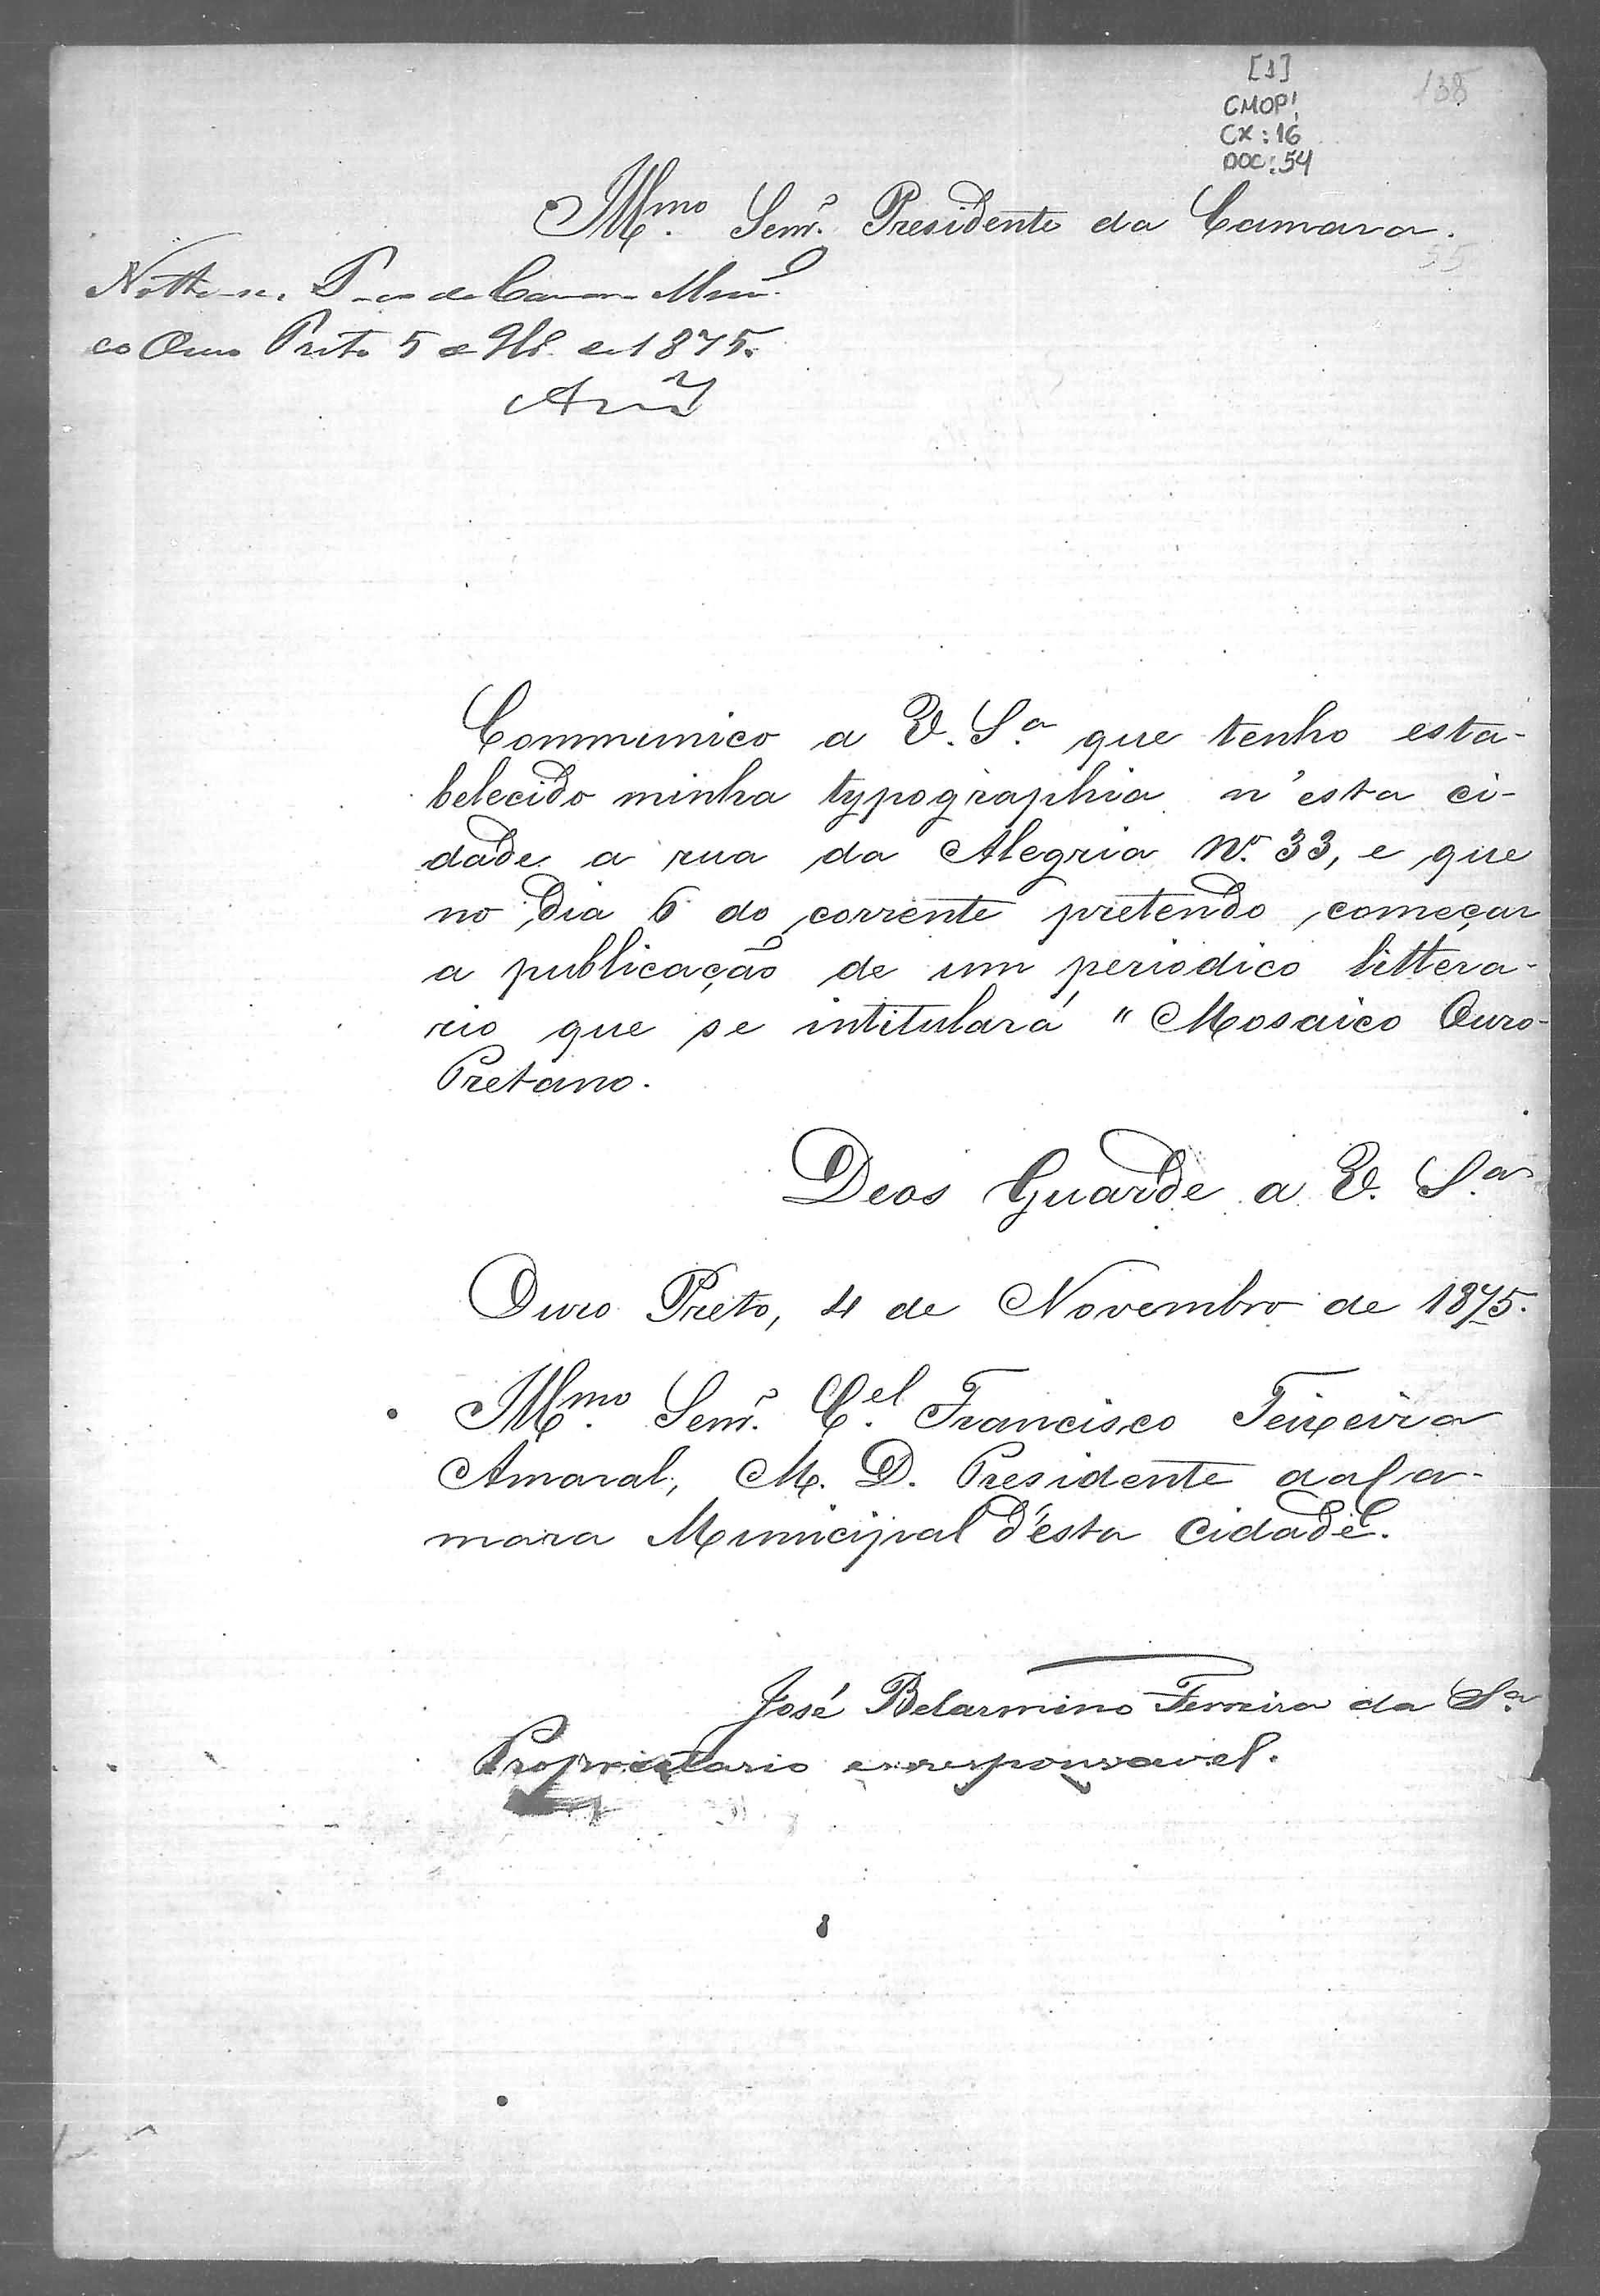 [1]
138
CMOP
CX: 16
DOC: 54
Illmo. Senr. Presidente da Camara.
35
Ouro Preto 5 de 9br. de 1875.
Communico a V. Sa. que tenho esta-
belecido minha typographia n'esta ci-
dade a rua da Alegria Nº. 33, e que
no dia 6 do corrente pretendo começar
a publicação de um periodico littera-
rio que se intitulará "Mosaico Ouro-
Pretano.
Deos Guarde a V. Sa.
Ouro Preto, 4 de Novembro de 1875.
Illmo. Senr. Cel. Francisco Teixeira
Amaral, M. D. Presidente da Ca-
mara Municipal d'esta Cidade.
José Belarmino Ferreira da Sa.
Proprietario e responsavel.